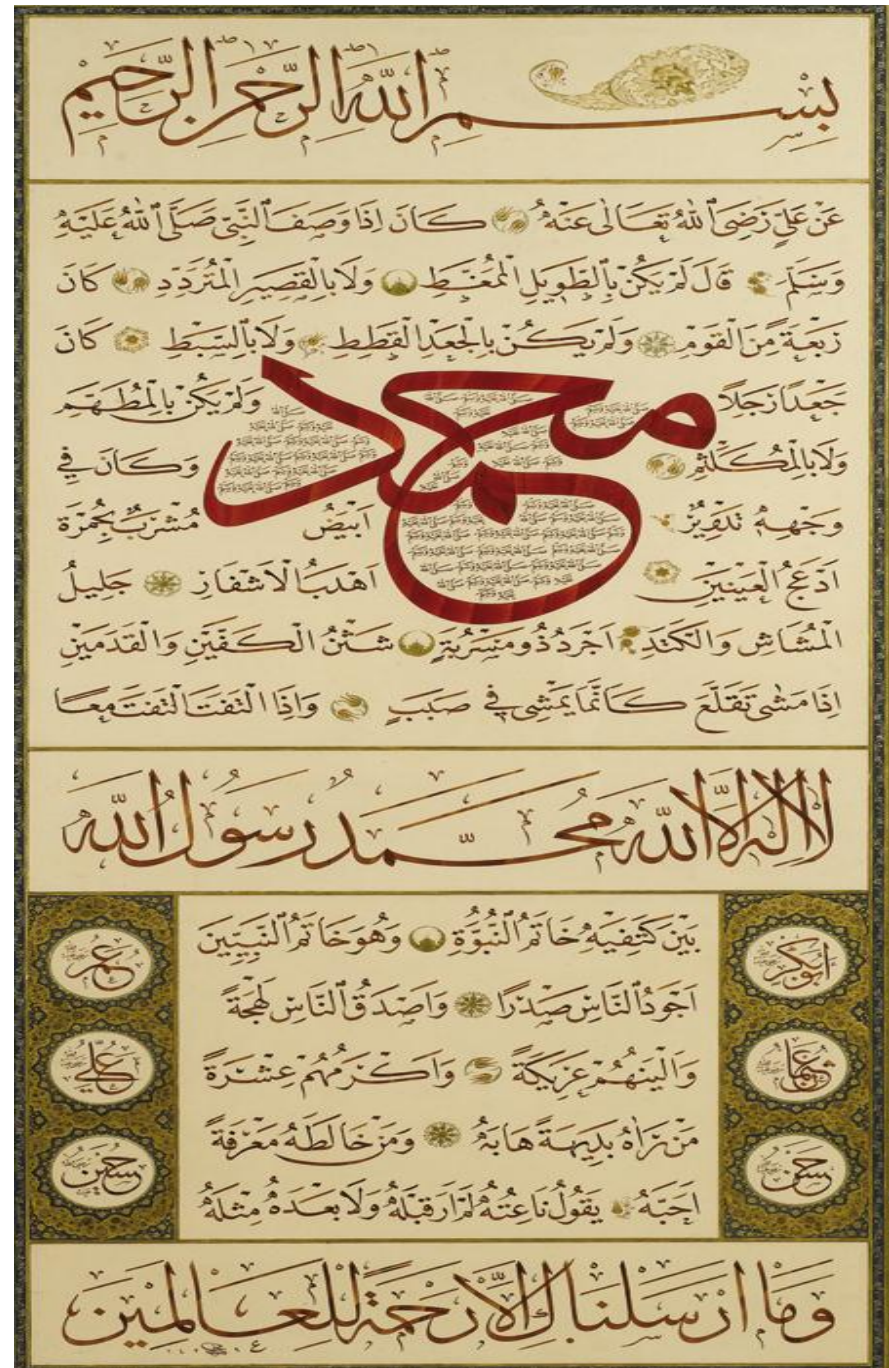 بِسْمِ اللهِ الرَّحْمٰنِ الرَّحِيمِ
عَنْ عَلِيٍّ رَضِيَ اللهُ تَعَالٰى عَنْهُ كَانَ اِذَا وَصَفَ النَّبِيَّ صَلَّى اللهُ عَلَيْهِ
وَسَلَّمَ قَالَ لَمْ يَكُنْ بِالطَّوِيلِ الْمُمَّغِطِ وَلَا بِالْقَصِيرِ الْمُتَرَدِّدِ كَانَ
رَبْعَةً مِنَ الْقَوْمِ وَلَمْ يَكُنْ بِالْجَعْدِ الْقَطِطِ وَلَا بِالسَّبْطِ كَانَ
جَعْدًا رَجِلًا وَلَمْ يَكُنْ بِالْمُطَهَّمِ
محمد
وَلَا بِالْمُكَلْثَمِ وَكَانَ فِي
وَجْهِهِ تَدْوِيرٌ اَبْيَضُ مُشْرَبٌ بِحُمْرَةٍ
اَدْعَجُ الْعَيْنَيْنِ اَهْدَبُ الْاَشْفَارِ جَلِيلُ
الْمُشَاشِ وَالْكَتَدِ اَجْرَدُ ذُو مَسْرُبَةٍ شَثْنُ الْكَفَّيْنِ وَالْقَدَمَيْنِ
اِذَا مَشٰى تَقَلَّعَ كَاَنَّمَا يَمْشِي فِي صَبَبٍ وَاِذَا الْتَفَتَ الْتَفَتَ مَعًا
لَا اِلٰهَ اِلَّا اللهُ مُحَمَّدٌ رَسُولُ اللهِ
اَبُوبَكْرٍ
عُمَرُ
عُثْمَانُ
عَلِيٌّ
حَسَنٌ
حُسَيْنٌ
بَيْنَ كَتِفَيْهِ خَاتَمُ النُّبُوَّةِ وَهُوَ خَاتَمُ النَّبِيِّينَ
اَجْوَدُ النَّاسِ صَدْرًا وَاَصْدَقُ النَّاسِ لَهْجَةً
وَاَلْيَنُهُمْ عَرِيكَةً وَاَكْرَمُهُمْ عِشْرَةً
مَنْ رَاٰهُ بَدِيهَةً هَابَهُ وَمَنْ خَالَطَهُ مَعْرِفَةً
اَحَبَّهُ يَقُولُ نَاعِتُهُ لَمْ اَرَ قَبْلَهُ وَلَا بَعْدَهُ مِثْلَهُ
وَمَا اَرْسَلْنَاكَ اِلَّا رَحْمَةً لِلْعَالَمِينَ